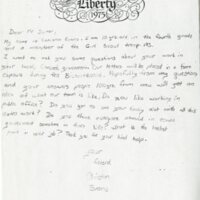 Liberty
1975
Dear Mr.
My name is Evans. I am 10 years in the fourth grade
and a member of the Girl Scout troop
I want to ask you some questions about your work in
your local government. Our letters will be placed in a time
capsule during the Bicentennial. Hopefully from my questions
and your answers people years from now will get an
idea of what our town is like. Do you like working in
public office? Do you get to see your family much with all this
work? Do you think everyone should in
government sometime in their life? What is the hardest
part in your job? Thank you for your kind help.
Your
friend
Evans